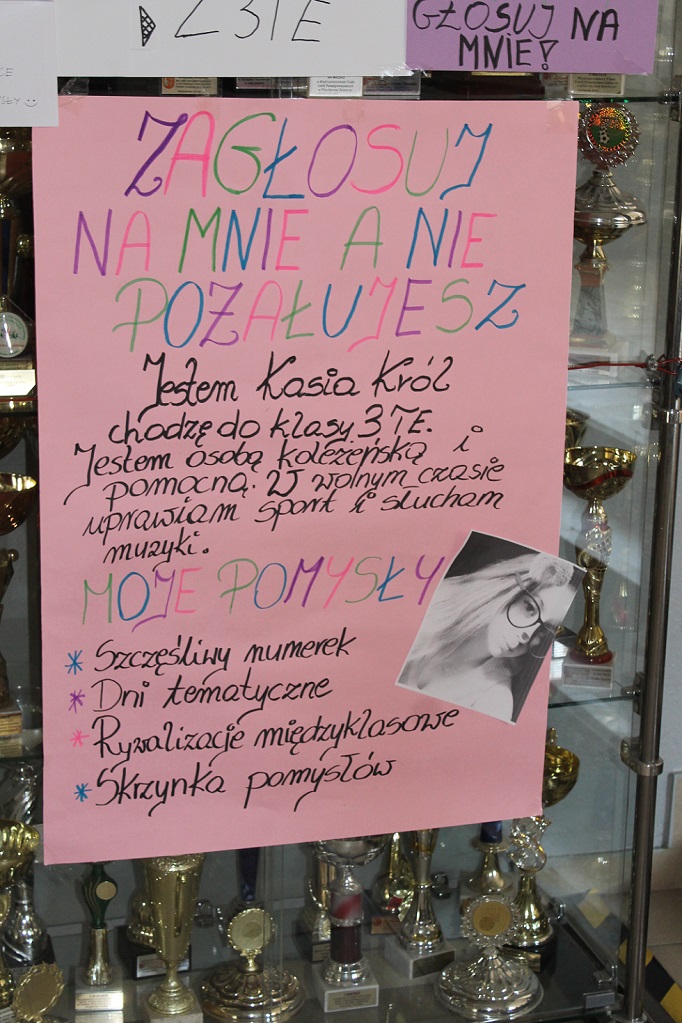 3TE
GŁOSUJ NA
MNIE!
ZAGŁOSUJ
NA MNIE A NIE
POŻAŁUJESZ
Jestem Kasia Król
chodzę do klasy 3 TE.
Jestem osobą koleżeńską i
pomocną. W wolnym czasie
uprawiam sport i słucham
muzyki.
MOJE POMYSŁY
* Szczęśliwy numerek
* Dni tematyczne
* Rywalizacje międzyklasowe
* Skrzynka pomysłów